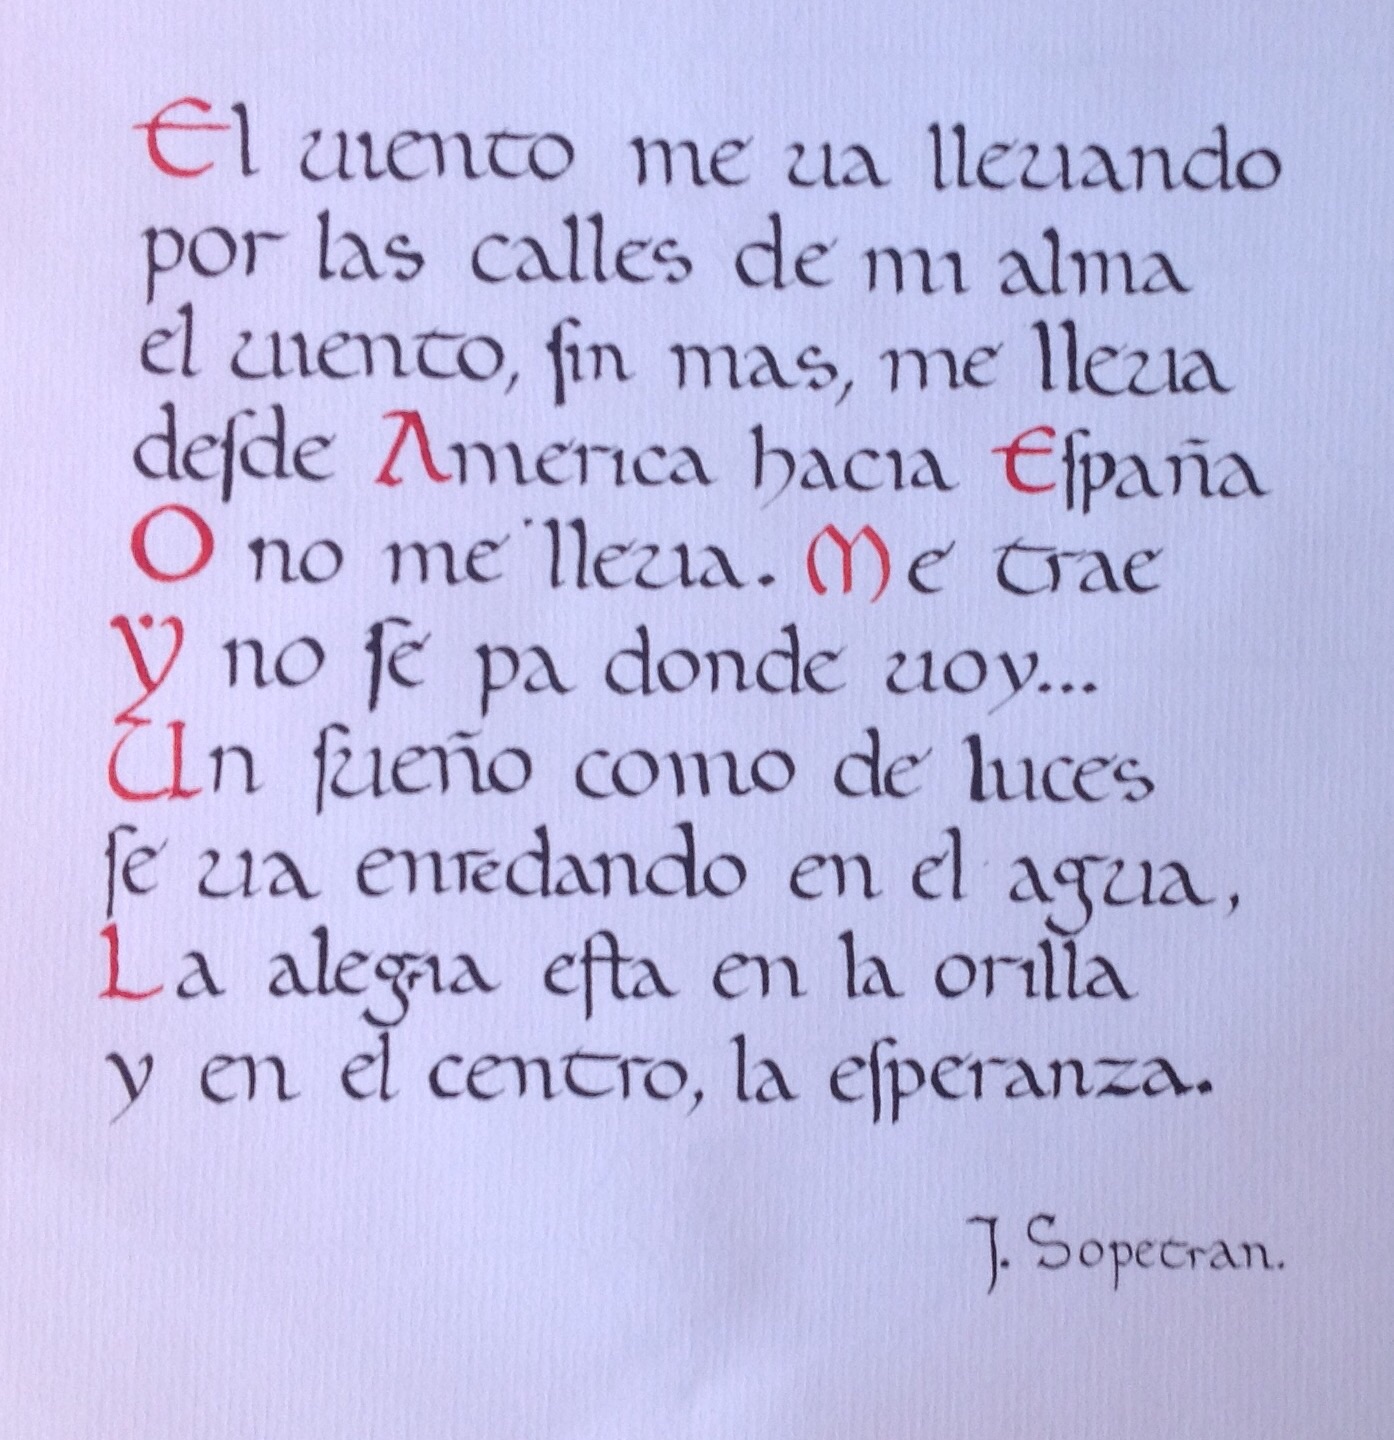 El viento me va llevando
por las calles de mi alma
el viento, ſin mas, me lleva
deſde America hacia Eſpaña
O no me lleva. Me trae
Y no ſe pa donde voy...
Un ſueño como de luces
ſe va enredando en el agua,
La alegria eſta en la orilla
y en el centro, la eſperanza.
J. Sopetran.